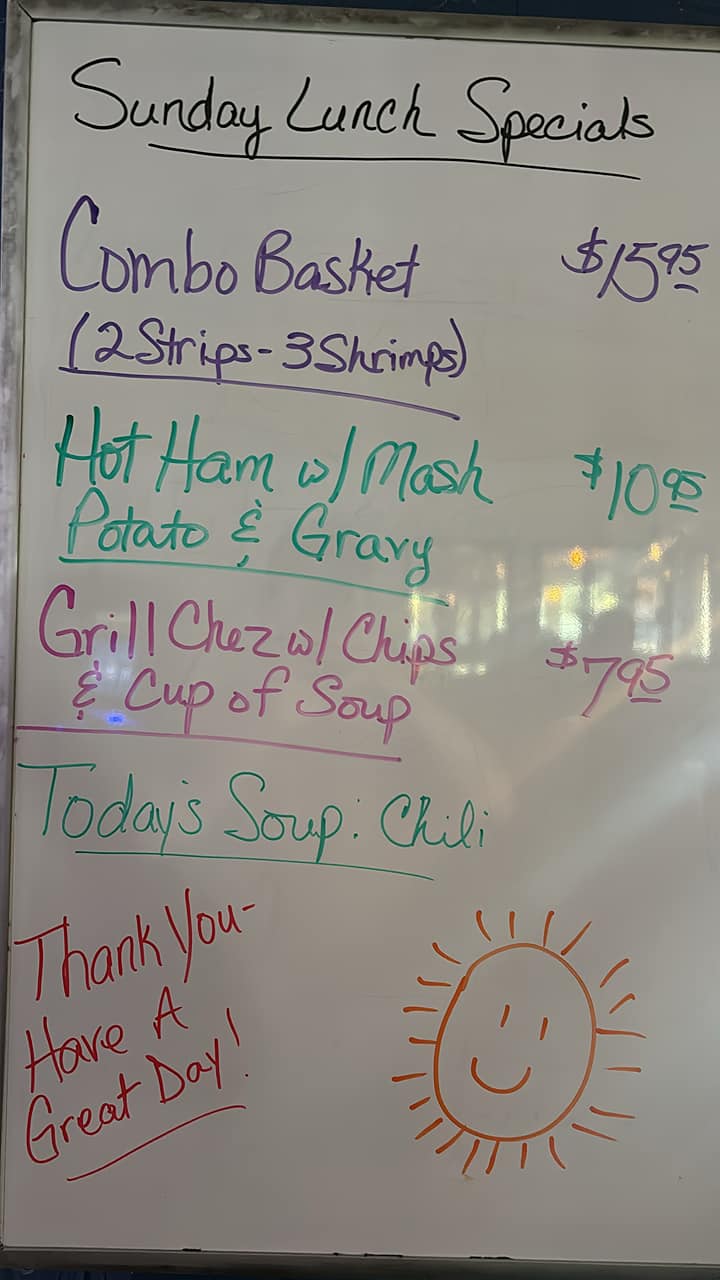 Sunday Lunch Specials
Combo Basket $15.95
(2 Strips - 3 Shrimps)
Hot Ham w/ Mash $10.95
Potato & Gravy
Grill Chez w/ Chips $7.95
& Cup of Soup
Today's Soup: Chili
Thank You-
Have A
Great Day!